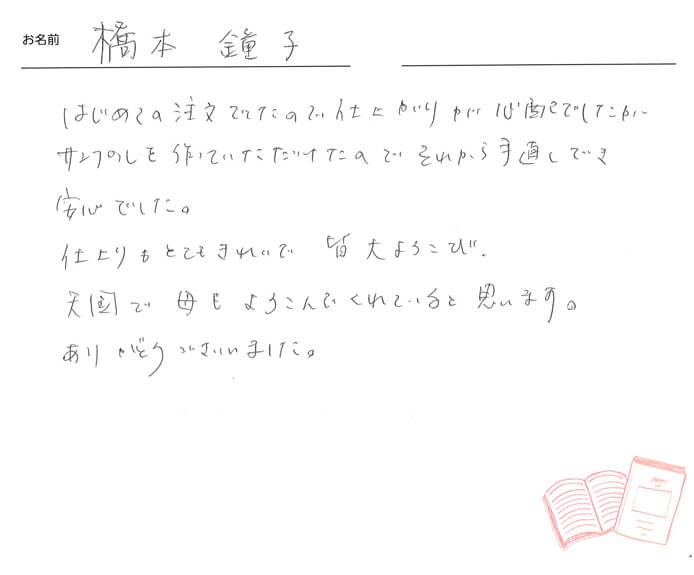 お名前 橋本 鐘子
はじめての注文でしたので仕上がりが心配でしたが
サンプルを作っていただけたのでそれから手直しでき
安心でした。
仕上りもとてもきれいで 皆大よろこび.
天国で母もよろこんでくれていると思います。
ありがとうございました。